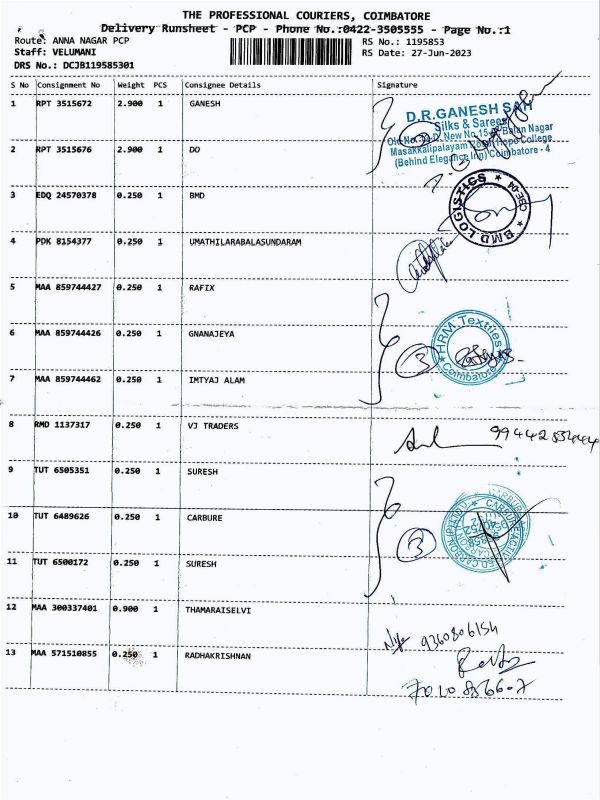 THE PROFESSIONAL COURIERS, COIMBATORE
Delivery Runsheet - PCP - Phone No.:0422-3505555 - Page No.:1
Route: ANNA NAGAR PCP RS No.: 1195853
Staff: VELUMANI RS Date: 27-Jun-2023
DRS No.: DCJB119585301
S No Consignment No Weight PCS Consignee Details Signature
1 RPT 3515672 2.900 1 GANESH
D.R.GANESH SAH
Silks & Sarees
Old No. New No.15 Balan Nagar
Masakkalipalayam Road Hope College
(Behind Elegance Inn) Coimbatore - 4
2 RPT 3515676 2.900 1 DO
3 EDQ 24570378 0.250 1 BMD
★ BMD LOGISTICS ★ CBE-04
4 PDK 8154377 0.250 1 UMATHILARABALASUNDARAM
5 MAA 859744427 0.250 1 RAFIX
6 MAA 859744426 0.250 1 GNANAJEYA
3
HRM Textiles
★ Coimbatore ★
7 MAA 859744462 0.250 1 IMTYAJ ALAM
8 RMD 1137317 0.250 1 VJ TRADERS
9 TUT 6505351 0.250 1 SURESH
10 TUT 6489626 0.250 1 CARBURE
3
11 TUT 6500172 0.250 1 SURESH
12 MAA 300337401 0.900 1 THAMARAISELVI
9360806154
13 MAA 571510855 0.250 1 RADHAKRISHNAN